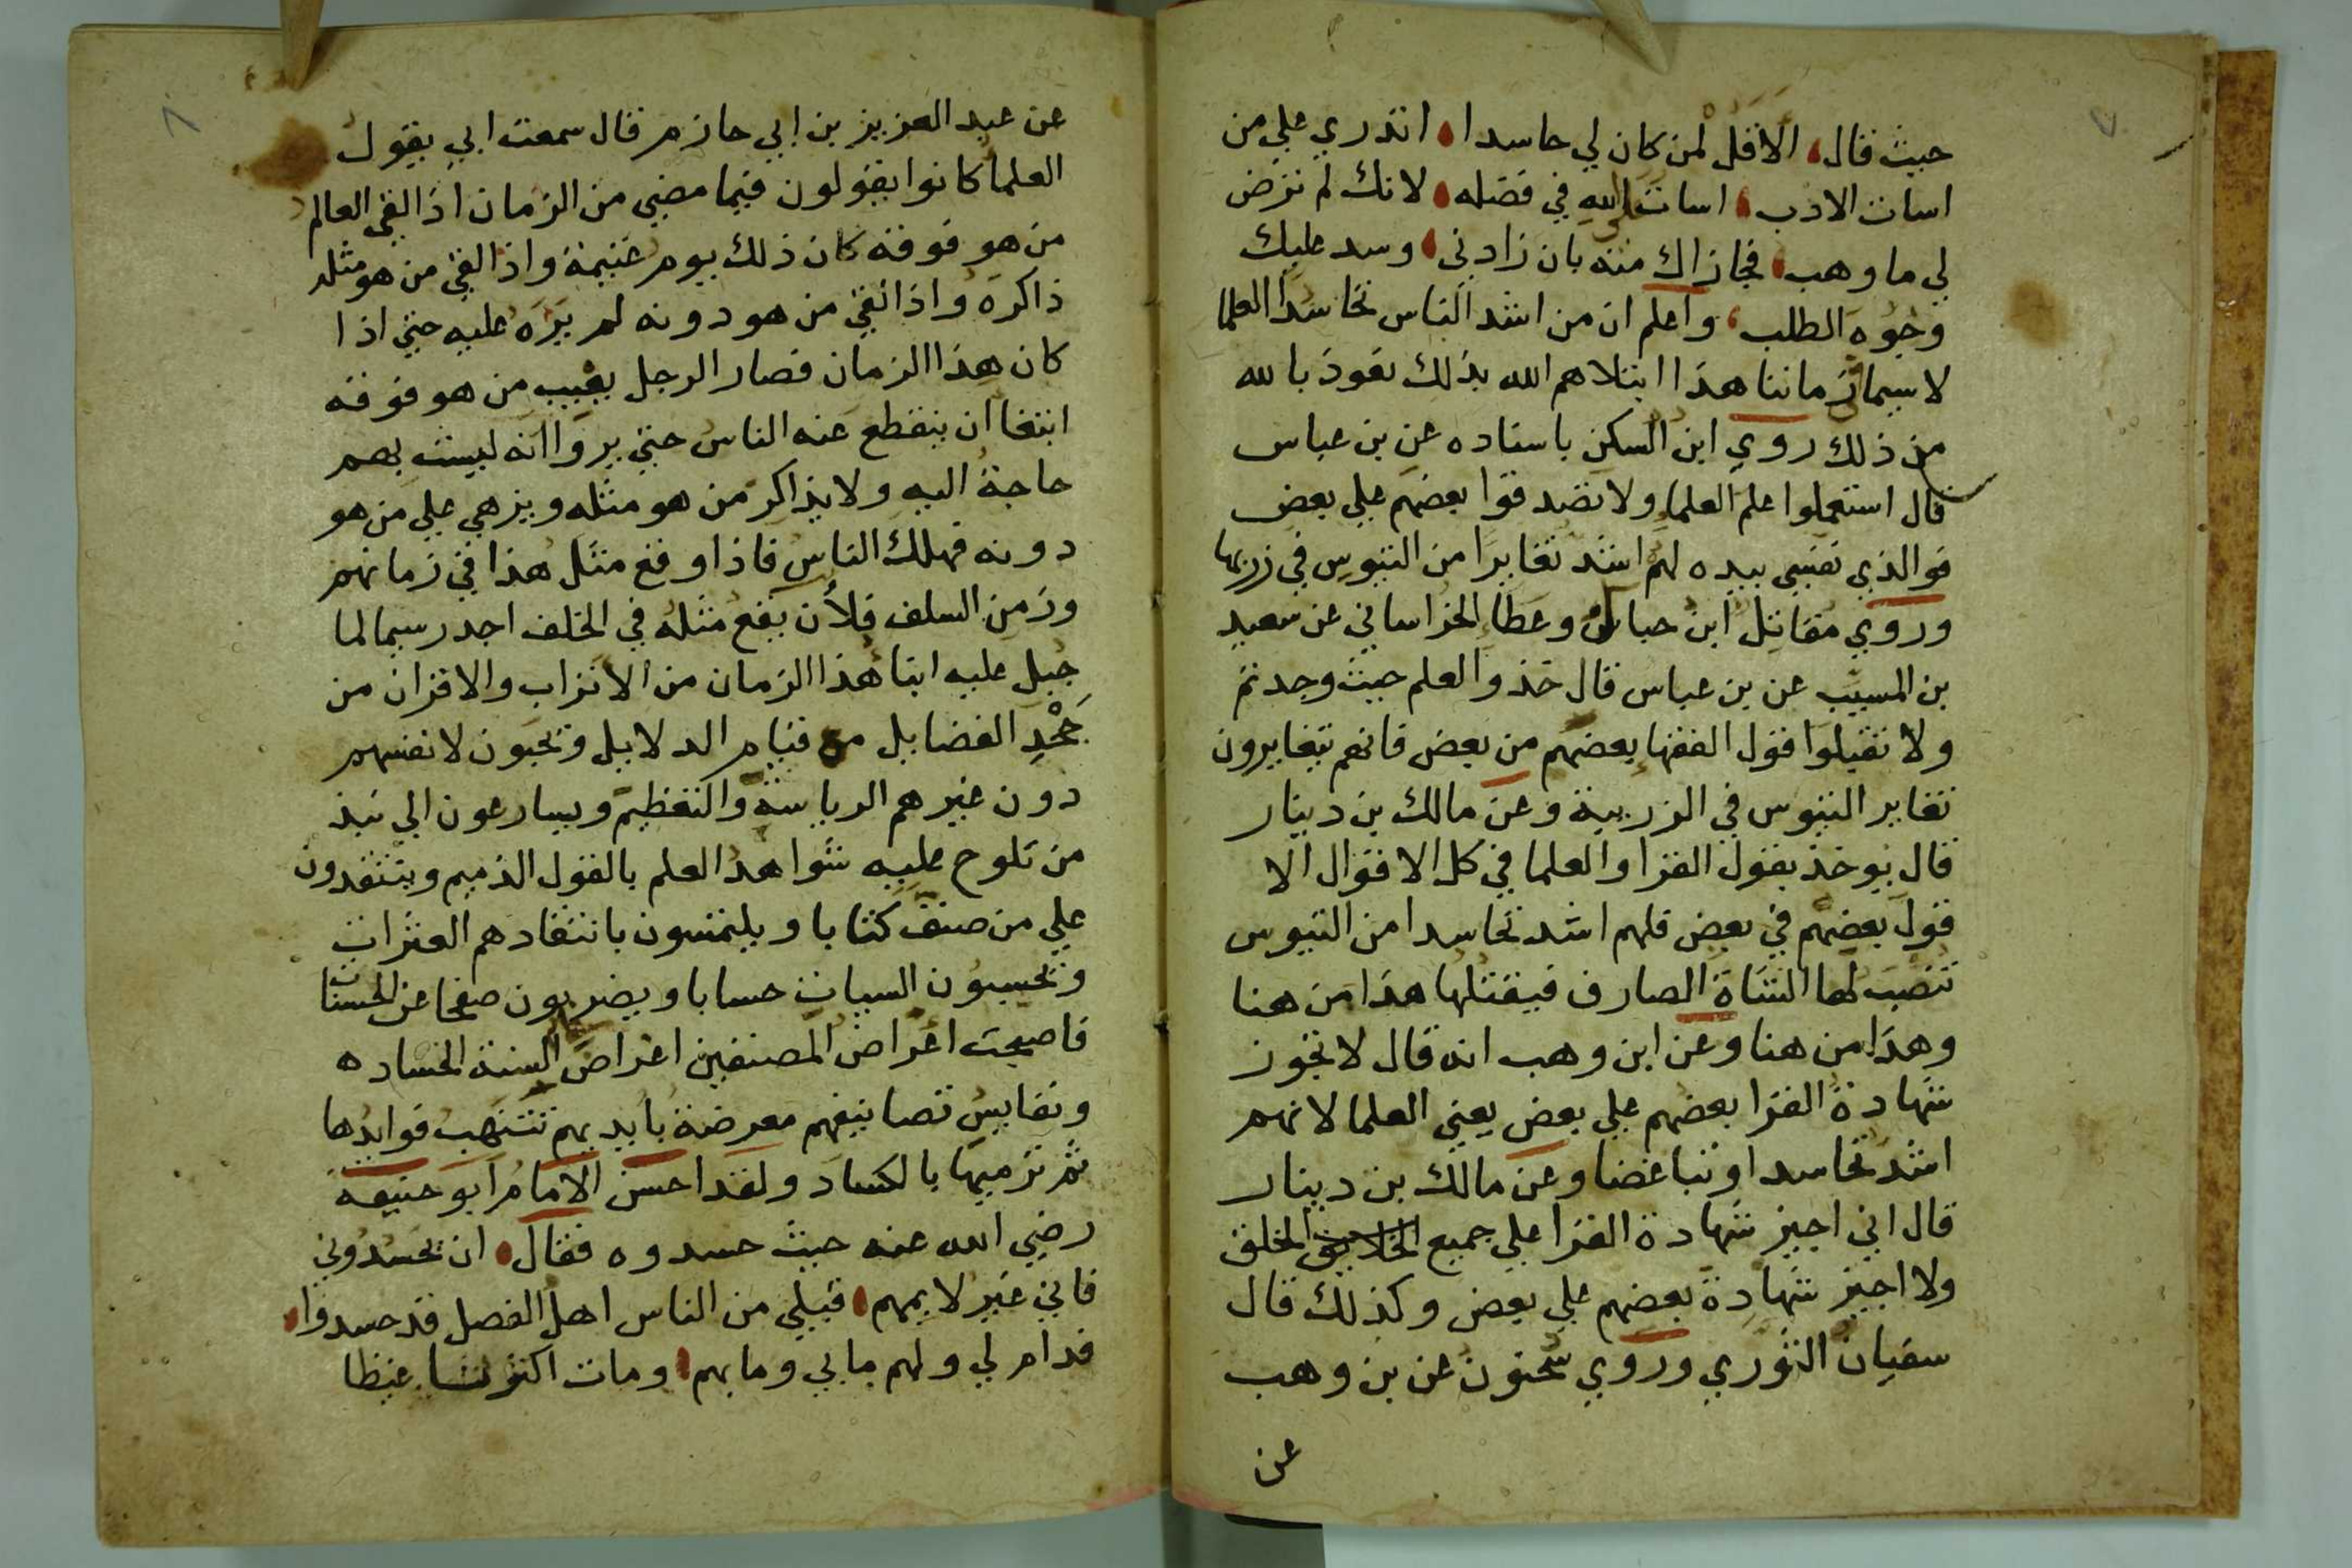 ٧
حيث قال، الا قل لمن كان لي حاسدا، اتدري علي من
اسات الادب، اسات علي الله في فضله، لانك لم ترض
لي ما وهب، فجازاك منه بان زادني، وسد عليك
وجوه الطلب، واعلم ان من اشد الناس تحاسدا العلما
لا سيما في زماننا هذا ابتلاهم الله بذلك نعوذ بالله
من ذلك روي ابن السكن باسناده عن بن عباس
قال استعملوا علم العلما ولا تصدقوا بعضهم علي بعض
فوالذي نفسي بيده لهم اشد تغايرا من التيوس في زربها
وروي مقاتل ابن حبان وعطا الخراساني عن سعيد
بن المسيب عن بن عباس قال خذوا العلم حيث وجدتم
ولا تقبلوا قول الفقها بعضهم من بعض فانهم يتغايرون
تغاير التيوس في الزريبة وعن مالك بن دينار
قال يوخذ بقول القرا والعلما في كل الاقوال الا
قول بعضهم في بعض فلهم اشد تحاسدا من التيوس
تنصب لها الشاة الصارف فيقتلها هذا من هنا
وهذا من هنا وعن ابن وهب انه قال لا تجوز
شهادة القرا بعضهم علي بعض يعني العلما لانهم
اشد تحاسدا وتباغضا وعن مالك بن دينار
قال اني اجيز شهادة القرا علي جميع الخلايق الخلق
ولا اجيز شهادة بعضهم علي بعض وكذلك قال
سفيان الثوري وروي سحنون عن بن وهب
عن
٨
عن عبد العزيز بن ابي حازم قال سمعت ابي يقول
العلما كانوا يقولون فيما مضي من الزمان اذا لقي العالم
من هو فوقه كان ذلك يوم غنيمة واذا لقي من هو مثله
ذاكره واذا لقي من هو دونه لم يزه عليه حتي اذا
كان هذا الزمان فصار الرجل يعيب من هو فوقه
ابتغا ان ينقطع عنه الناس حتي يروا انه ليست بهم
حاجة اليه ولا يذاكر من هو مثله ويزهي علي من هو
دونه فهلك الناس فاذا وقع مثل هذا في زمانهم
وزمن السلف فلأن يقع مثله في الخلف اجدر سيما لما
جبل عليه ابنا هذا الزمان من الاتراب والاقران من
جحد الفضايل مع قيام الدلايل ويحبون لانفسهم
دون غيرهم الرياسة والتعظيم ويسارعون الي نبذ
من تلوح عليه شواهد العلم بالقول الذميم وينتقدون
علي من صنف كتابا ويلتمسون بانتقادهم العثرات
ويحسبون السيات حسابا ويضربون صفحا عن الحسنات
فاصبحت اعراض المصنفين اغراض السنة الحساده
ونفايس تصانيفهم معرضة بايديهم تنتهب فوايدها
ثم ترميها بالكساد ولقد احسن الامام ابو حنيفة
رضي الله عنه حيث حسدوه فقال، ان يحسدوني
فاني غير لايمهم، قبلي من الناس اهل الفضل قد حسدوا،
فدام لي ولهم ما بي وما بهم، ومات اكثرنا غيظا